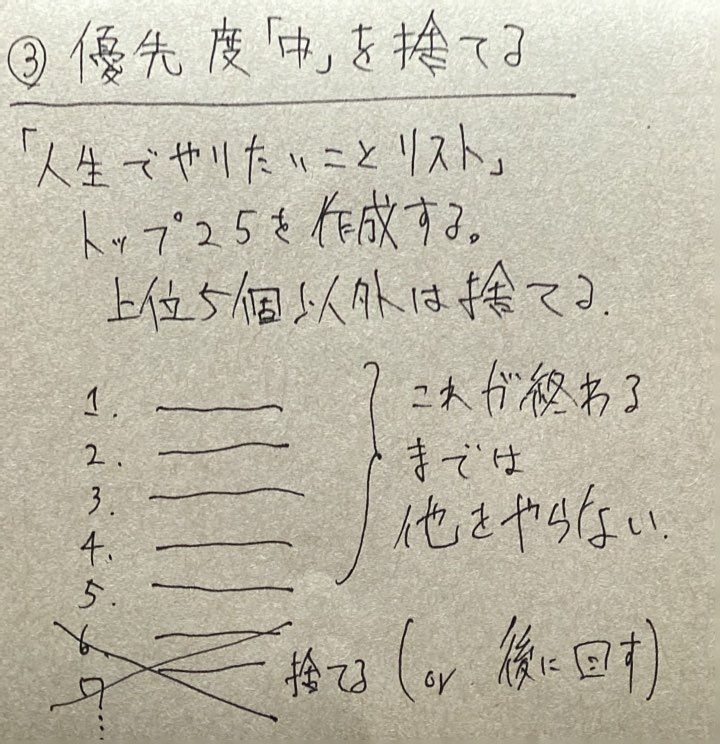 ③ 優先度「中」を捨てる
「人生でやりたいことリスト」
トップ25を作成する。
上位5個以外は捨てる.
1.
2.
3.
4.
5.
これが終わる
までは
他をやらない.
6.
7
⋮
捨てる (or 後に回す)